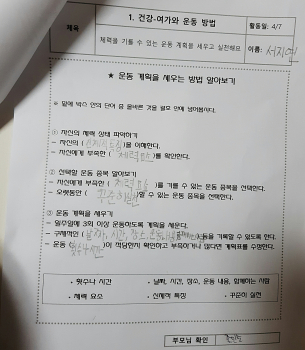 제목
1. 건강·여가와 운동 방법
활동일: 4/7
체력을 기를 수 있는 운동 계획을 세우고 실천해요
이름: 서지연
★ 운동 계획을 세우는 방법 알아보기
※ 밑에 박스 안의 단어 중 올바른 것을 괄호 안에 넣어봅시다.
① 자신의 체력 상태 파악하기
– 자신의 (신체적 특징)을 이해한다.
– 자신에게 부족한 (체력 요소)를 확인한다.
② 선택할 운동 종목 알아보기
– 자신에게 부족한 (체력 요소)를 기를 수 있는 운동 종목을 선택한다.
– 오랫동안 (꾸준히 실천)할 수 있는 운동 종목을 선택한다.
③ 운동 계획을 세우기
– 일주일에 3회 이상 운동하도록 계획을 세운다.
– 구체적인 (날짜, 시간, 장소, 운동 내용,)등을 기록할 수 있도록 한다.
– 운동 (횟수나 시간)이 적당한지 확인하고 부족하거나 많다면 계획표를 수정한다.
• 횟수나 시간 • 날짜, 시간, 장소, 운동 내용, 함께하는 사람
• 체력 요소 • 신체적 특징 • 꾸준히 실천
부모님 확인